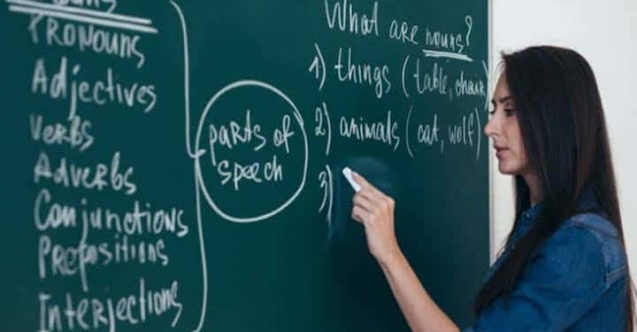 PRONOUNS
Adjectives
Verbs
Adverbs
Conjunctions
Prepositions
Interjections
parts of
speech
What are nouns?
1) things (table, chair
2) animals (cat, wolf)
3)